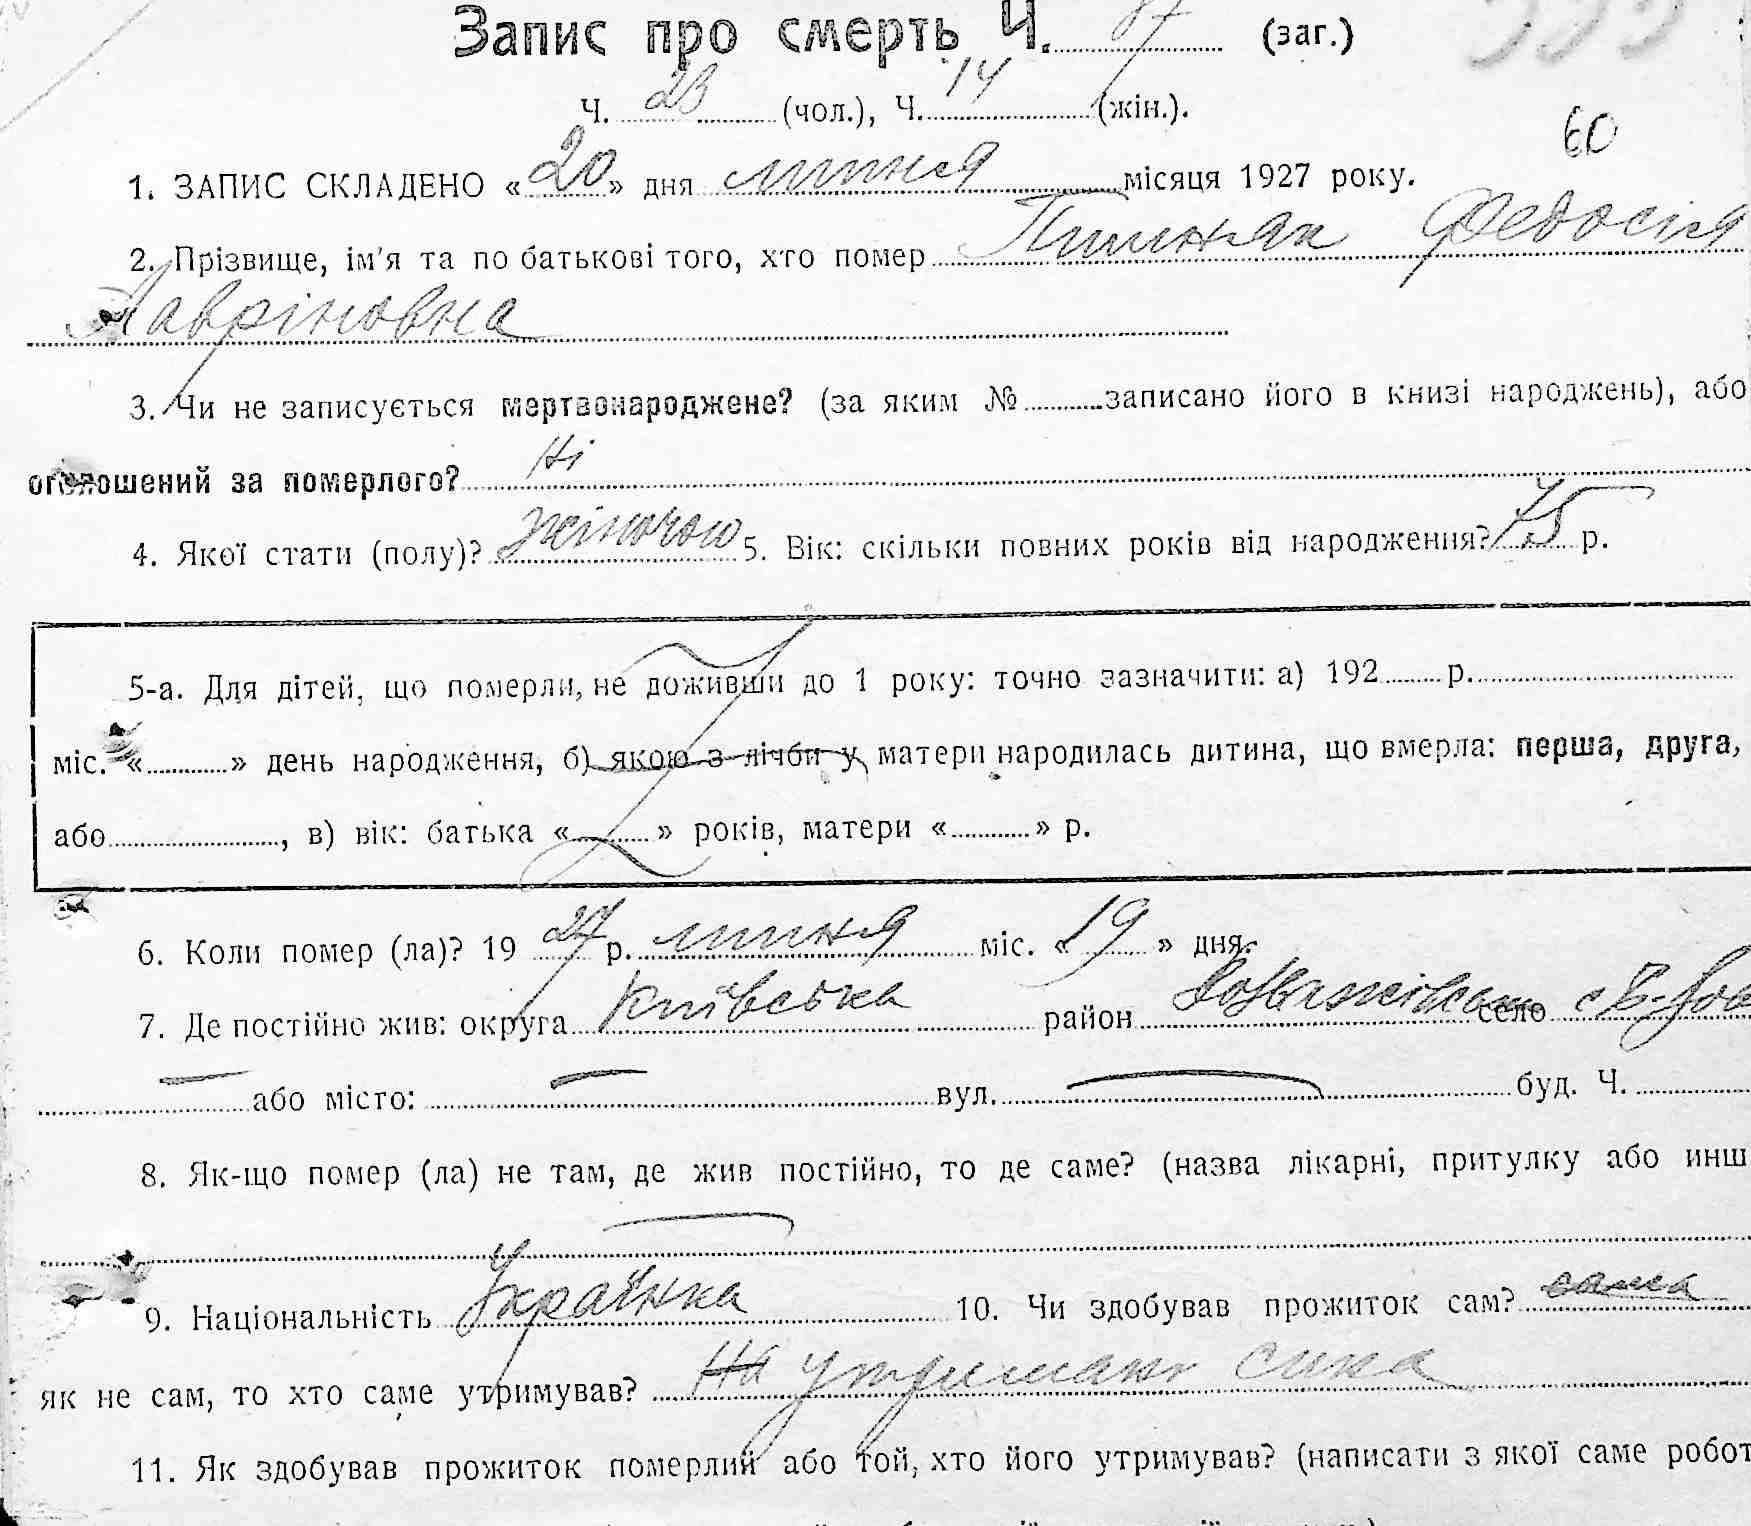 Запис про смерть Ч. 37 (заг.)
Ч. 23 (чол.), Ч. 14 (жін.).
60
1. ЗАПИС СКЛАДЕНО «20» дня липня місяця 1927 року.
2. Прізвище, ім'я та по батькові того, хто помер Федосія
Лавріновна
3. Чи не записується мертвонароджене? (за яким № записано його в книзі народжень), або
оголошений за померлого? Ні
4. Якої стати (полу)? жіночою 5. Вік: скільки повних років від народження? 75 р.
5-а. Для дітей, що померли, не доживши до 1 року: точно зазначити: а) 192 р.
міс. « » день народження, б) якою з лічби у матери народилась дитина, що вмерла: перша, друга,
або , в) вік: батька « » років, матери « » р.
6. Коли помер (ла)? 19 27 р. липня міс. «19» дня.
7. Де постійно жив: округа Київська район село
або місто: вул. буд. Ч.
8. Як-що помер (ла) не там, де жив постійно, то де саме? (назва лікарні, притулку або инш
9. Національність Українка 10. Чи здобував прожиток сам? сама
як не сам, то хто саме утримував? На утриманн сина
11. Як здобував прожиток померлий або той, хто його утримував? (написати з якої саме робот